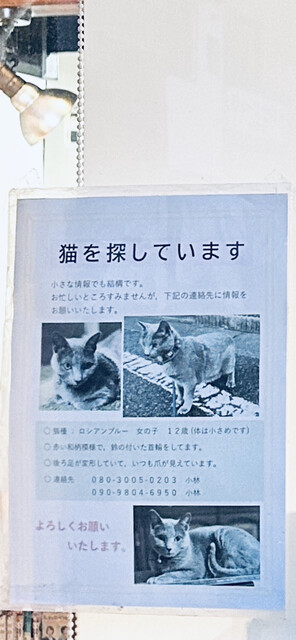 猫を探しています
小さな情報でも結構です。
お忙しいところすみませんが、下記の連絡先に情報を
お願いいたします。
○ 猫種 : ロシアンブルー 女の子 12歳(体は小さめです)
○ 赤い和柄模様で、鈴の付いた首輪をしてます。
○ 後ろ足が変形していて、いつも爪が見えています。
○ 連絡先 080-3005-0203 小林
090-9804-6950 小林
よろしくお願い
いたします。